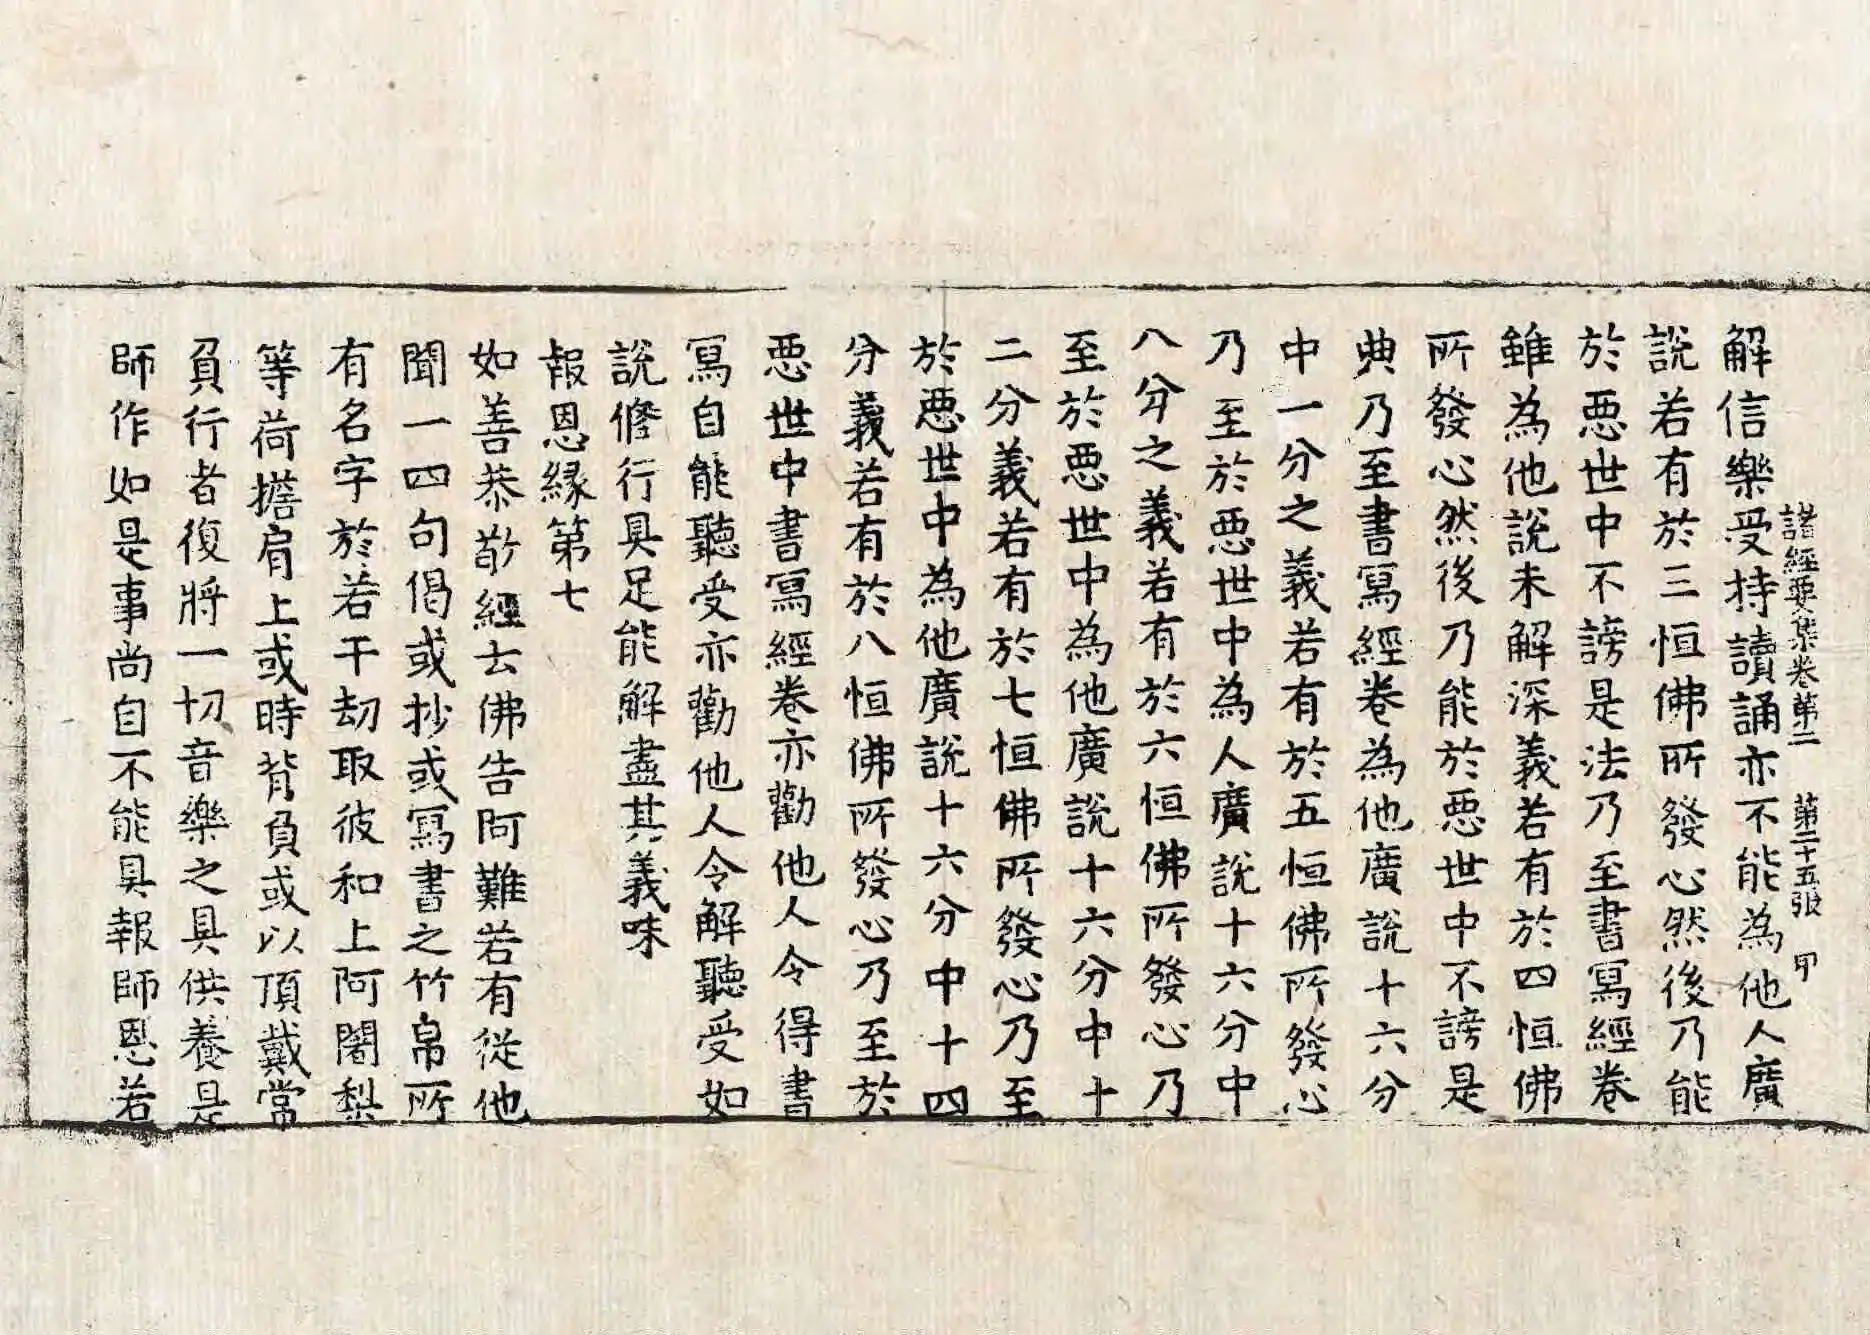 諸經要集卷第二 第二十五張 甲
解信樂受持讀誦亦不能為他人廣
說若有於三恒佛所發心然後乃能
於惡世中不謗是法乃至書寫經卷
雖為他說未解深義若有於四恒佛
所發心然後乃能於惡世中不謗是
典乃至書寫經卷為他廣說十六分
中一分之義若有於五恒佛所發心
乃至於惡世中為人廣說十六分中
八分之義若有於六恒佛所發心乃
至於惡世中為他廣說十六分中十
二分義若有於七恒佛所發心乃至
於惡世中為他廣說十六分中十四
分義若有於八恒佛所發心乃至於
惡世中書寫經卷亦勸他人令得書
寫自能聽受亦勸他人令解聽受如
說修行具足能解盡其義味
報恩緣第七
如善恭敬經云佛告阿難若有從他
聞一四句偈或抄或寫書之竹帛所
有名字於若干劫取彼和上阿闍梨
等荷擔肩上或時背負或以頂戴常
負行者復將一切音樂之具供養是
師作如是事尚自不能具報師恩若